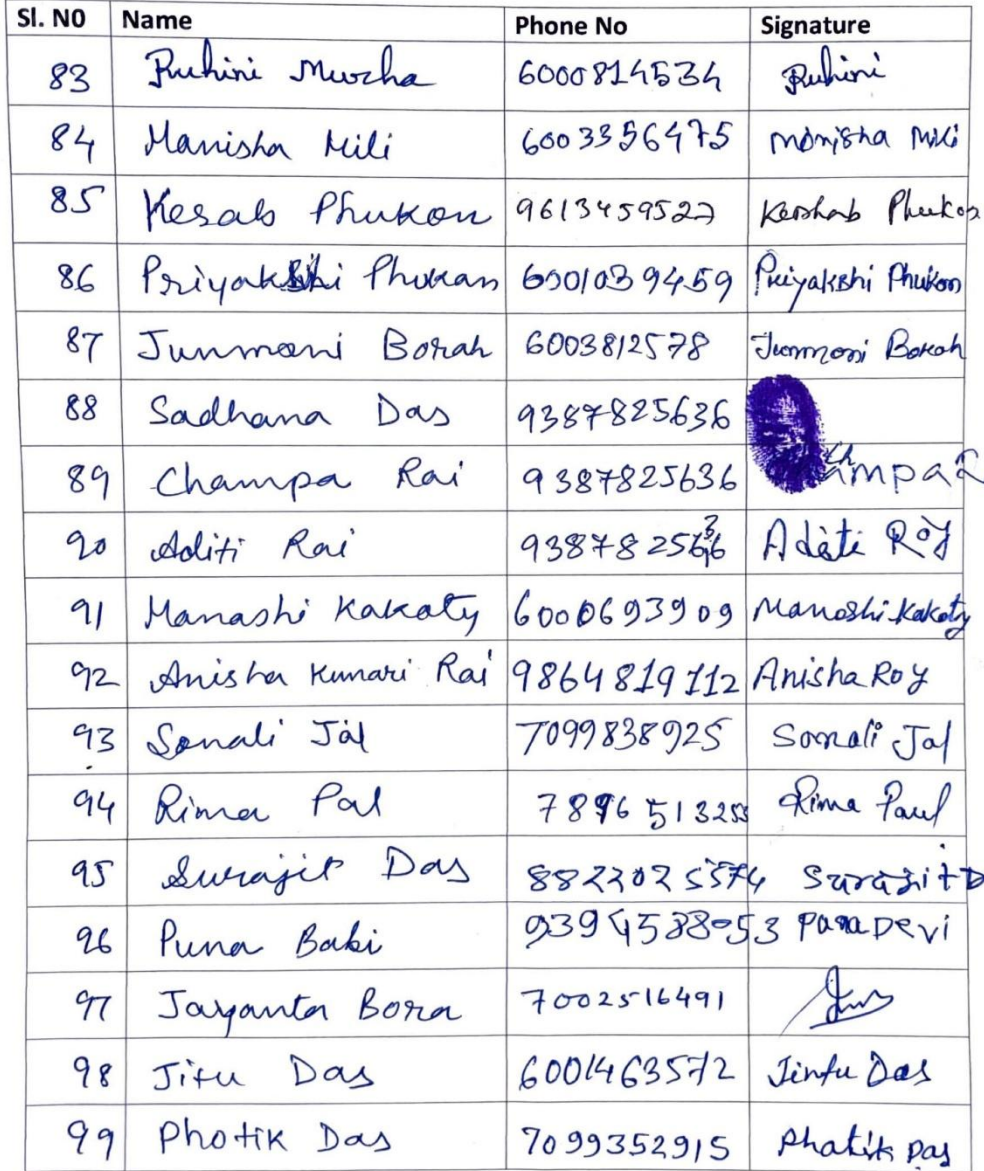 Sl. N0 Name Phone No Signature
83 Ruhini Murha 6000814534 Ruhini
84 Manisha Mili 6003356475 Monisha Mili
85 Kesab Phukon 9613459527 Keshab Phukon
86 Priyakshi Phukan 6001039459 Priyakshi Phukon
87 Junmoni Borah 6003812578 Junmoni Borah
88 Sadhana Das 9387825636
89 Champa Rai 9387825636 Champa R
90 Aditi Rai 9387825636 Aditi Roy
91 Manashi Kakaty 6000693909 Manashi Kakoty
92 Anisha Kumari Rai 9864819112 Anisha Roy
93 Sonali Jal 7099838925 Sonali Jal
94 Rima Pal 7896513253 Rima Paul
95 Surajit Das 8822025574 Surajit D
96 Puna Babi 9394588053 Pana Devi
97 Jayanta Bora 7002516491
98 Jitu Das 6001463572 Jintu Das
99 Photik Das 7099352915 Phatik Das